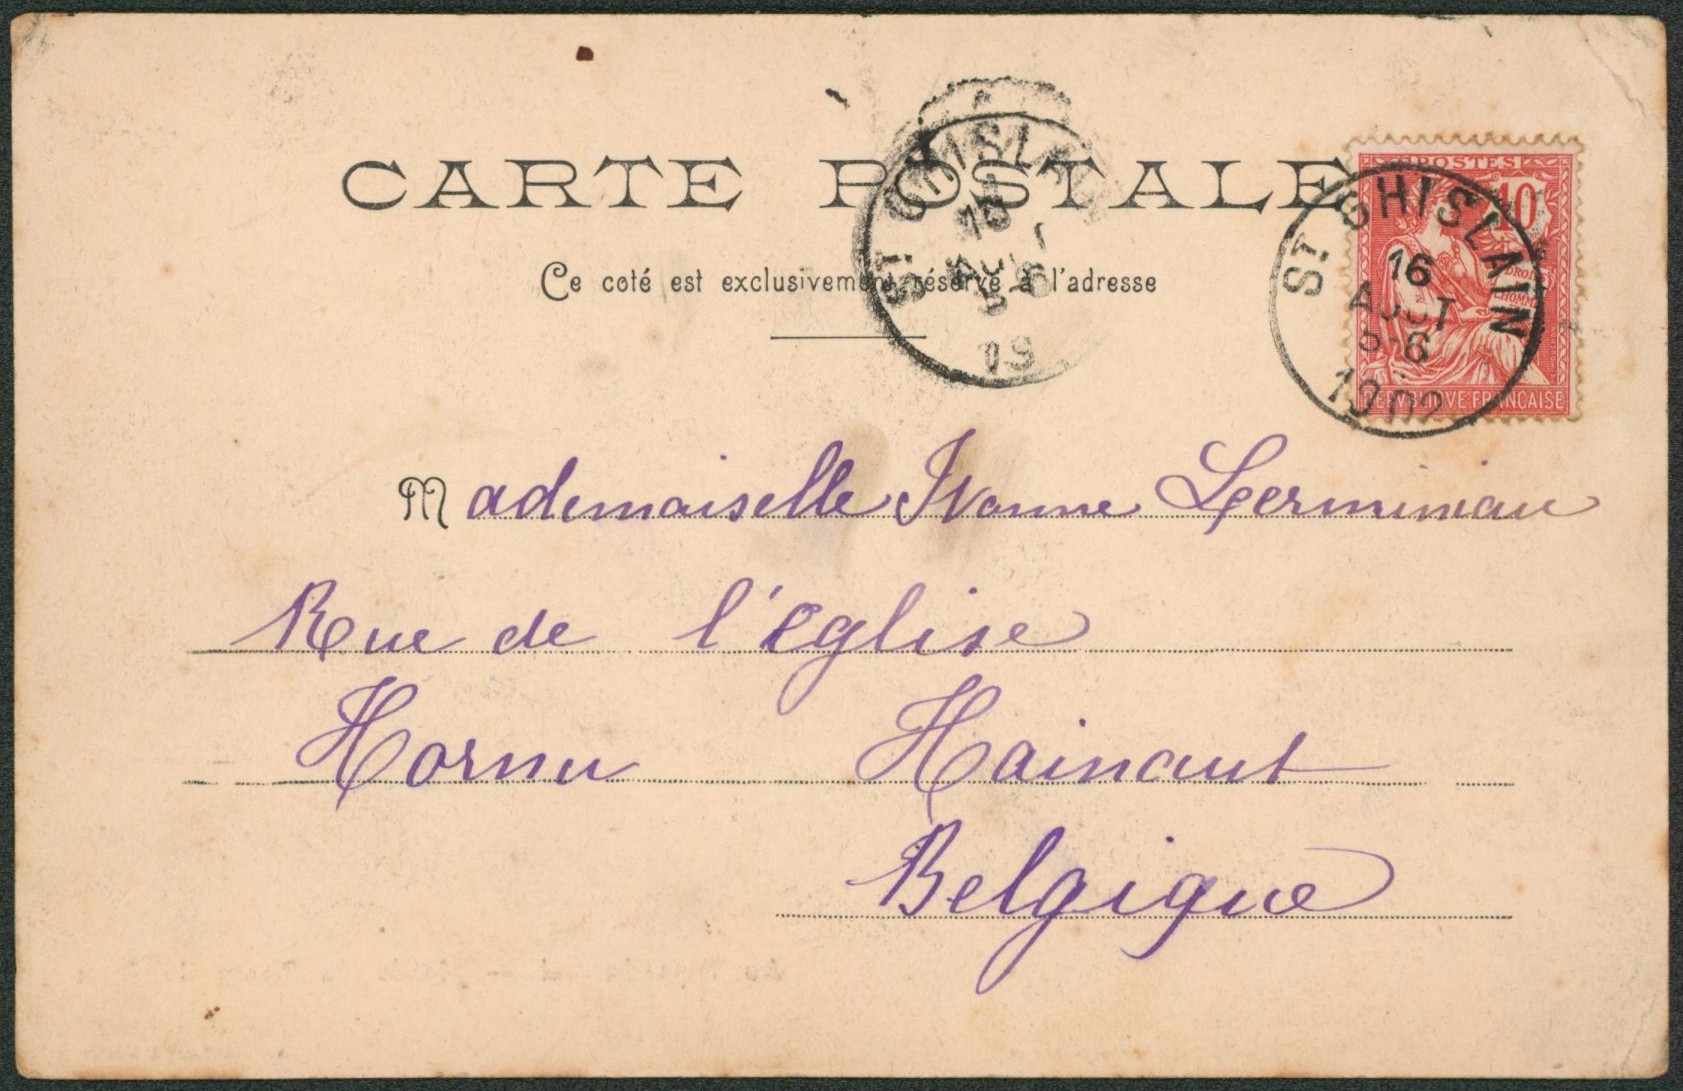 CARTE POSTALE
Ce coté est exclusivement réservé à l'adresse
POSTES
10
DROITS
L'HOMME
REPVBLIQVE FRANÇAISE
ST GHISLAIN
16
AOUT
5-6
1902
ST GHISLAIN
5-6
19
Mademoiselle Ivonne
Rue de l'église
Hornu Hainaut
Belgique